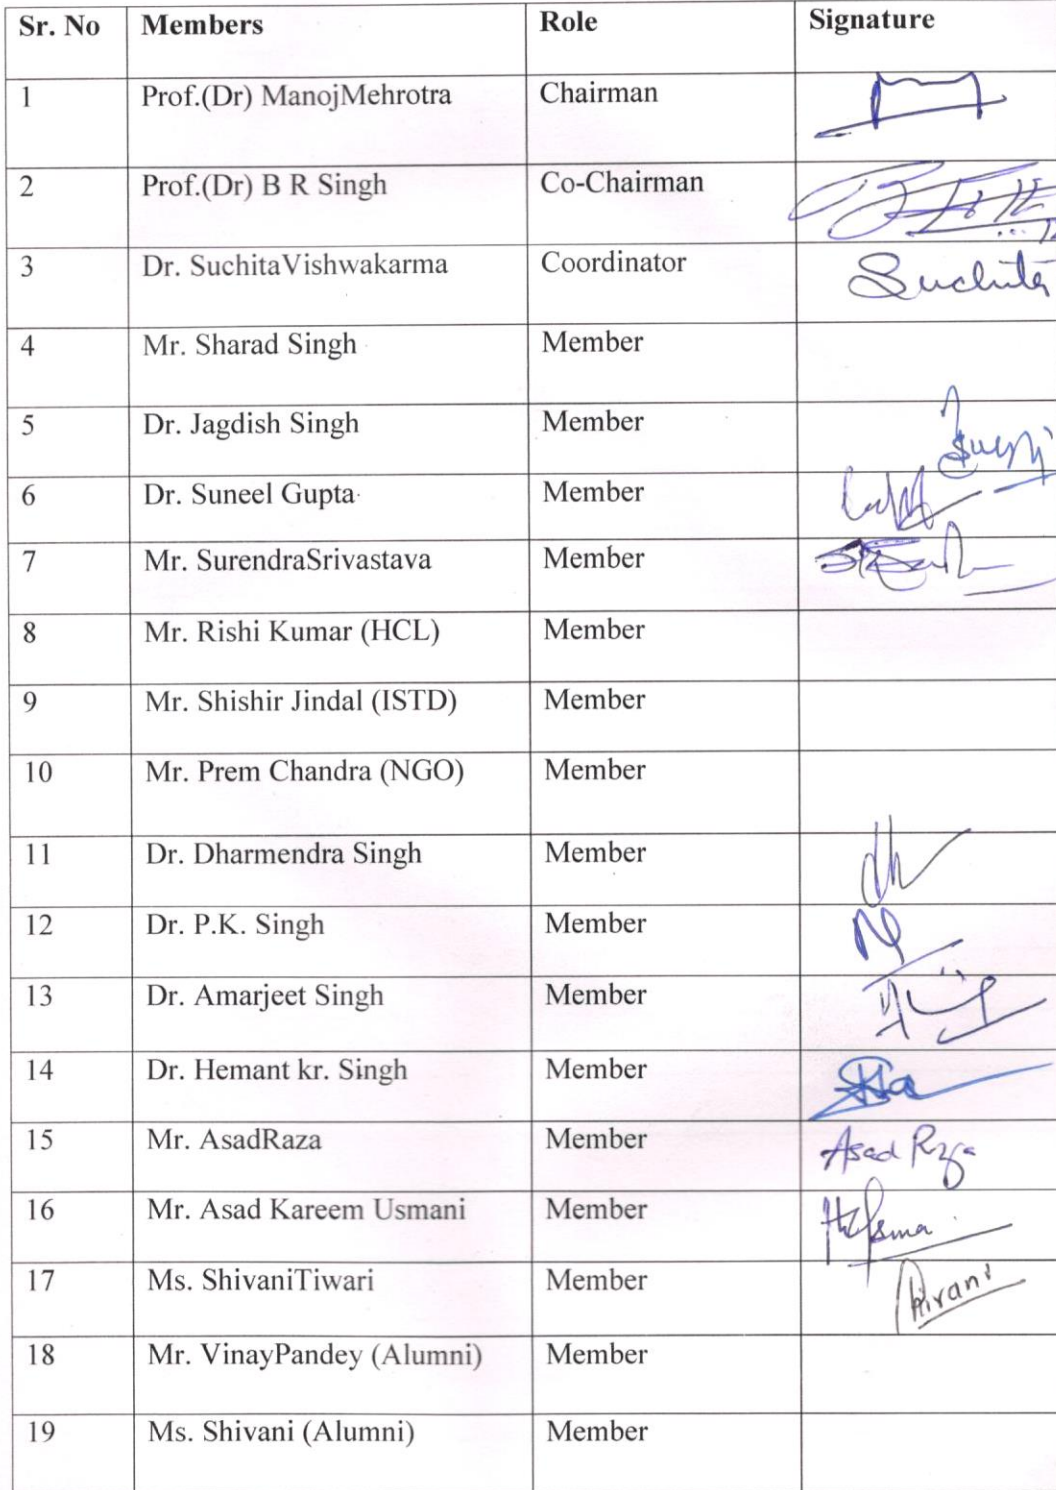 Sr. No Members Role Signature
1 Prof.(Dr) ManojMehrotra Chairman
2 Prof.(Dr) B R Singh Co-Chairman
3 Dr. SuchitaVishwakarma Coordinator Suchita
4 Mr. Sharad Singh Member
5 Dr. Jagdish Singh Member
6 Dr. Suneel Gupta Member
7 Mr. SurendraSrivastava Member
8 Mr. Rishi Kumar (HCL) Member
9 Mr. Shishir Jindal (ISTD) Member
10 Mr. Prem Chandra (NGO) Member
11 Dr. Dharmendra Singh Member
12 Dr. P.K. Singh Member
13 Dr. Amarjeet Singh Member
14 Dr. Hemant kr. Singh Member
15 Mr. AsadRaza Member Asad Raza
16 Mr. Asad Kareem Usmani Member
17 Ms. ShivaniTiwari Member Shivani
18 Mr. VinayPandey (Alumni) Member
19 Ms. Shivani (Alumni) Member